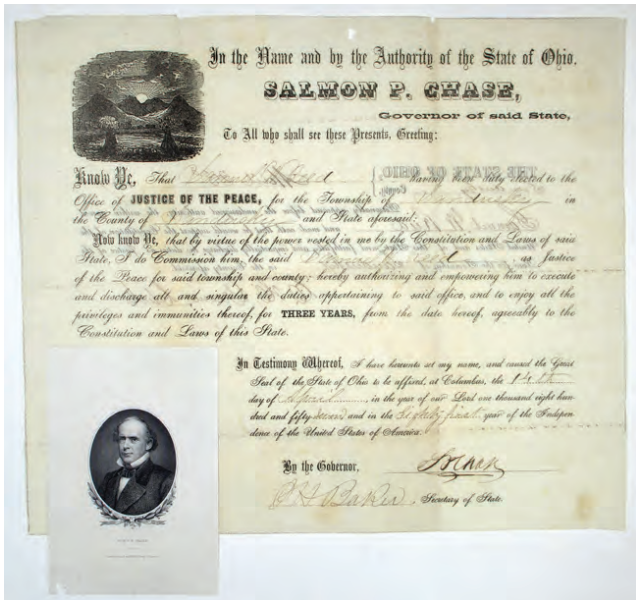 In the Name and by the Authority of the State of Ohio.
SALMON P. CHASE,
Governor of said State,
To All who shall see these Presents, Greeting:
Know Ye, That having been duly elected to the
Office of JUSTICE OF THE PEACE, for the Township of in
the County of and State aforesaid:
Now know Ye, that by virtue of the power vested in me by the Constitution and Laws of said
State, I do Commission him, the said as Justice
of the Peace for said township and county; hereby authorizing and empowering him to execute
and discharge all and singular the duties appertaining to said office, and to enjoy all the
privileges and immunities thereof, for THREE YEARS, from the date hereof, agreeably to the
Constitution and Laws of this State.
In Testimony Whereof, I have hereunto set my name, and caused the Great
Seal of the State of Ohio to be affixed, at Columbus, the 14th
day of April, in the year of our Lord one thousand eight hun-
dred and fifty seven and in the Eighty first year of the Indepen-
dence of the United States of America.
By the Governor,
S P Chase
Baker, Secretary of State.